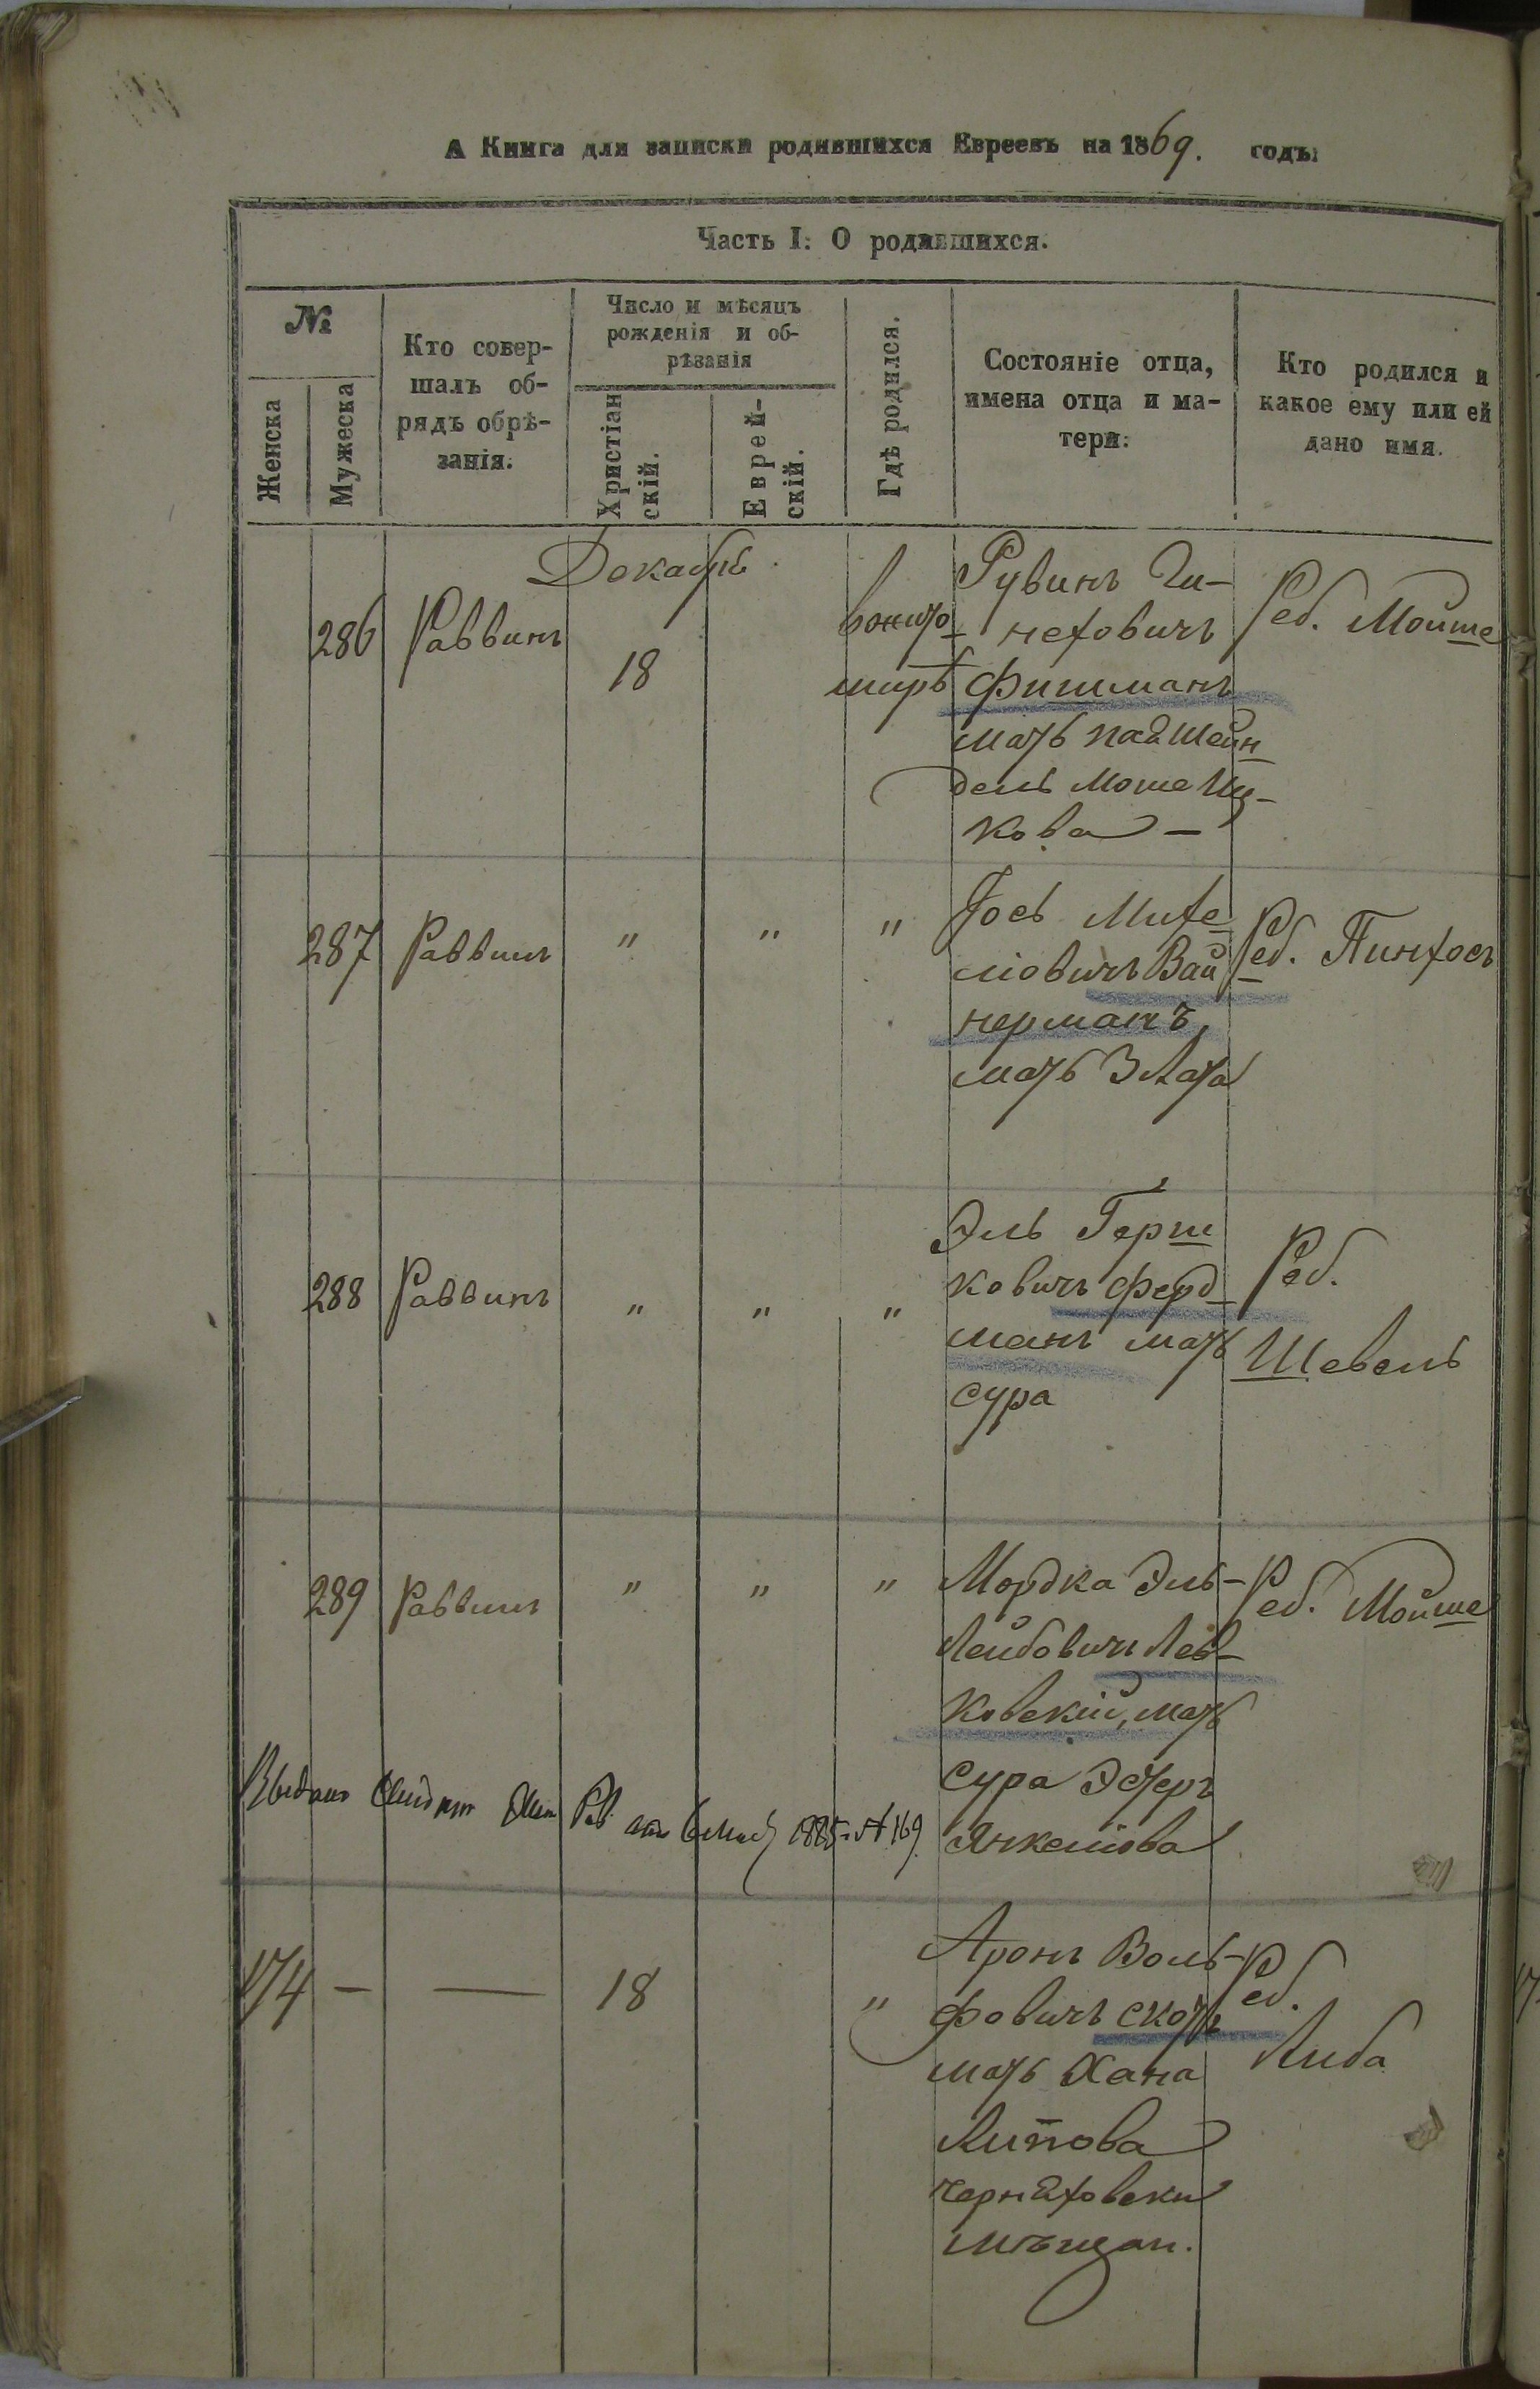 А Книга для записки родившихся Евреевъ на 1869. годъ:
Часть I: О родившихся.
№
Женска
Мужеска
Кто совер-
шалъ об-
рядъ обрѣ-
занія.
Число и мѣсяцъ
рожденія и об-
рѣзанія
Христіан
скій.
Еврей-
скій.
Гдѣ родился.
Состояніе отца,
имена отца и ма-
тери:
Кто родился и
какое ему или ей
дано имя.
Декабрь
286 Раввинъ 18
вжито-
мирѣ
Рувинъ
неховичъ
Фишманъ
мать Шейн
дель
кова —
Реб. Мойше
287 Раввинъ " " "
Іось Михе
ліовичъ Вай
нерманъ,
мать Злата
Реб. Пинхосъ
288 Раввинъ " " "
Эль Герш
ковичъ Фельд
манъ мать
Сура
Реб.
Шевель
289 Раввинъ " " "
Мордка Эль-
Лейбовичъ Лев-
ковскій, мать
Сура Эстеръ
Янкеліова
Реб. Мойше
Выдано 1885 № 169
174 — — 18 "
Аронъ Воль-
фовичъ Скотъ
мать Хана
Липова
Черняховски
мѣщан.
Реб.
Либа